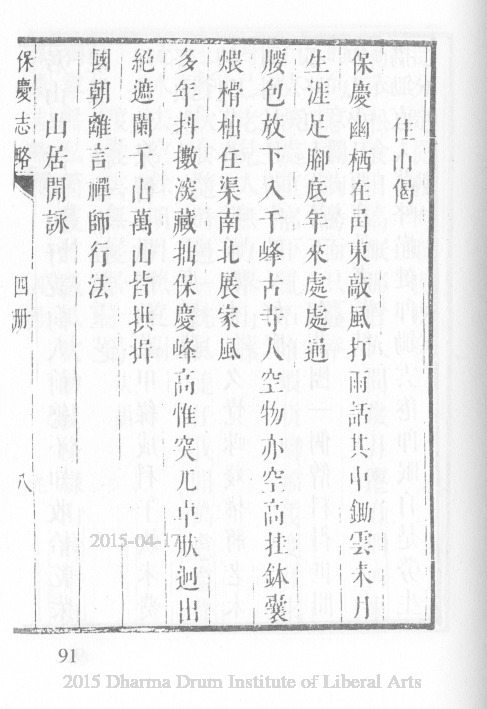 住山偈
保慶幽栖在甬東敲風打雨話其中鋤雲耒月
生涯足腳底年來處處通
腰包放下入千峰古寺人空物亦空高挂鉢囊
煨榾柮任渠南北展家風
多年抖擻淡藏拙保慶峰高惟突兀卓肰迥出
絕遮闌千山萬山皆拱揖
國朝離言禪師行法
山居閒詠
保慶志略 四册 八
2015-04-17
91
2015 Dharma Drum Institute of Liberal Arts